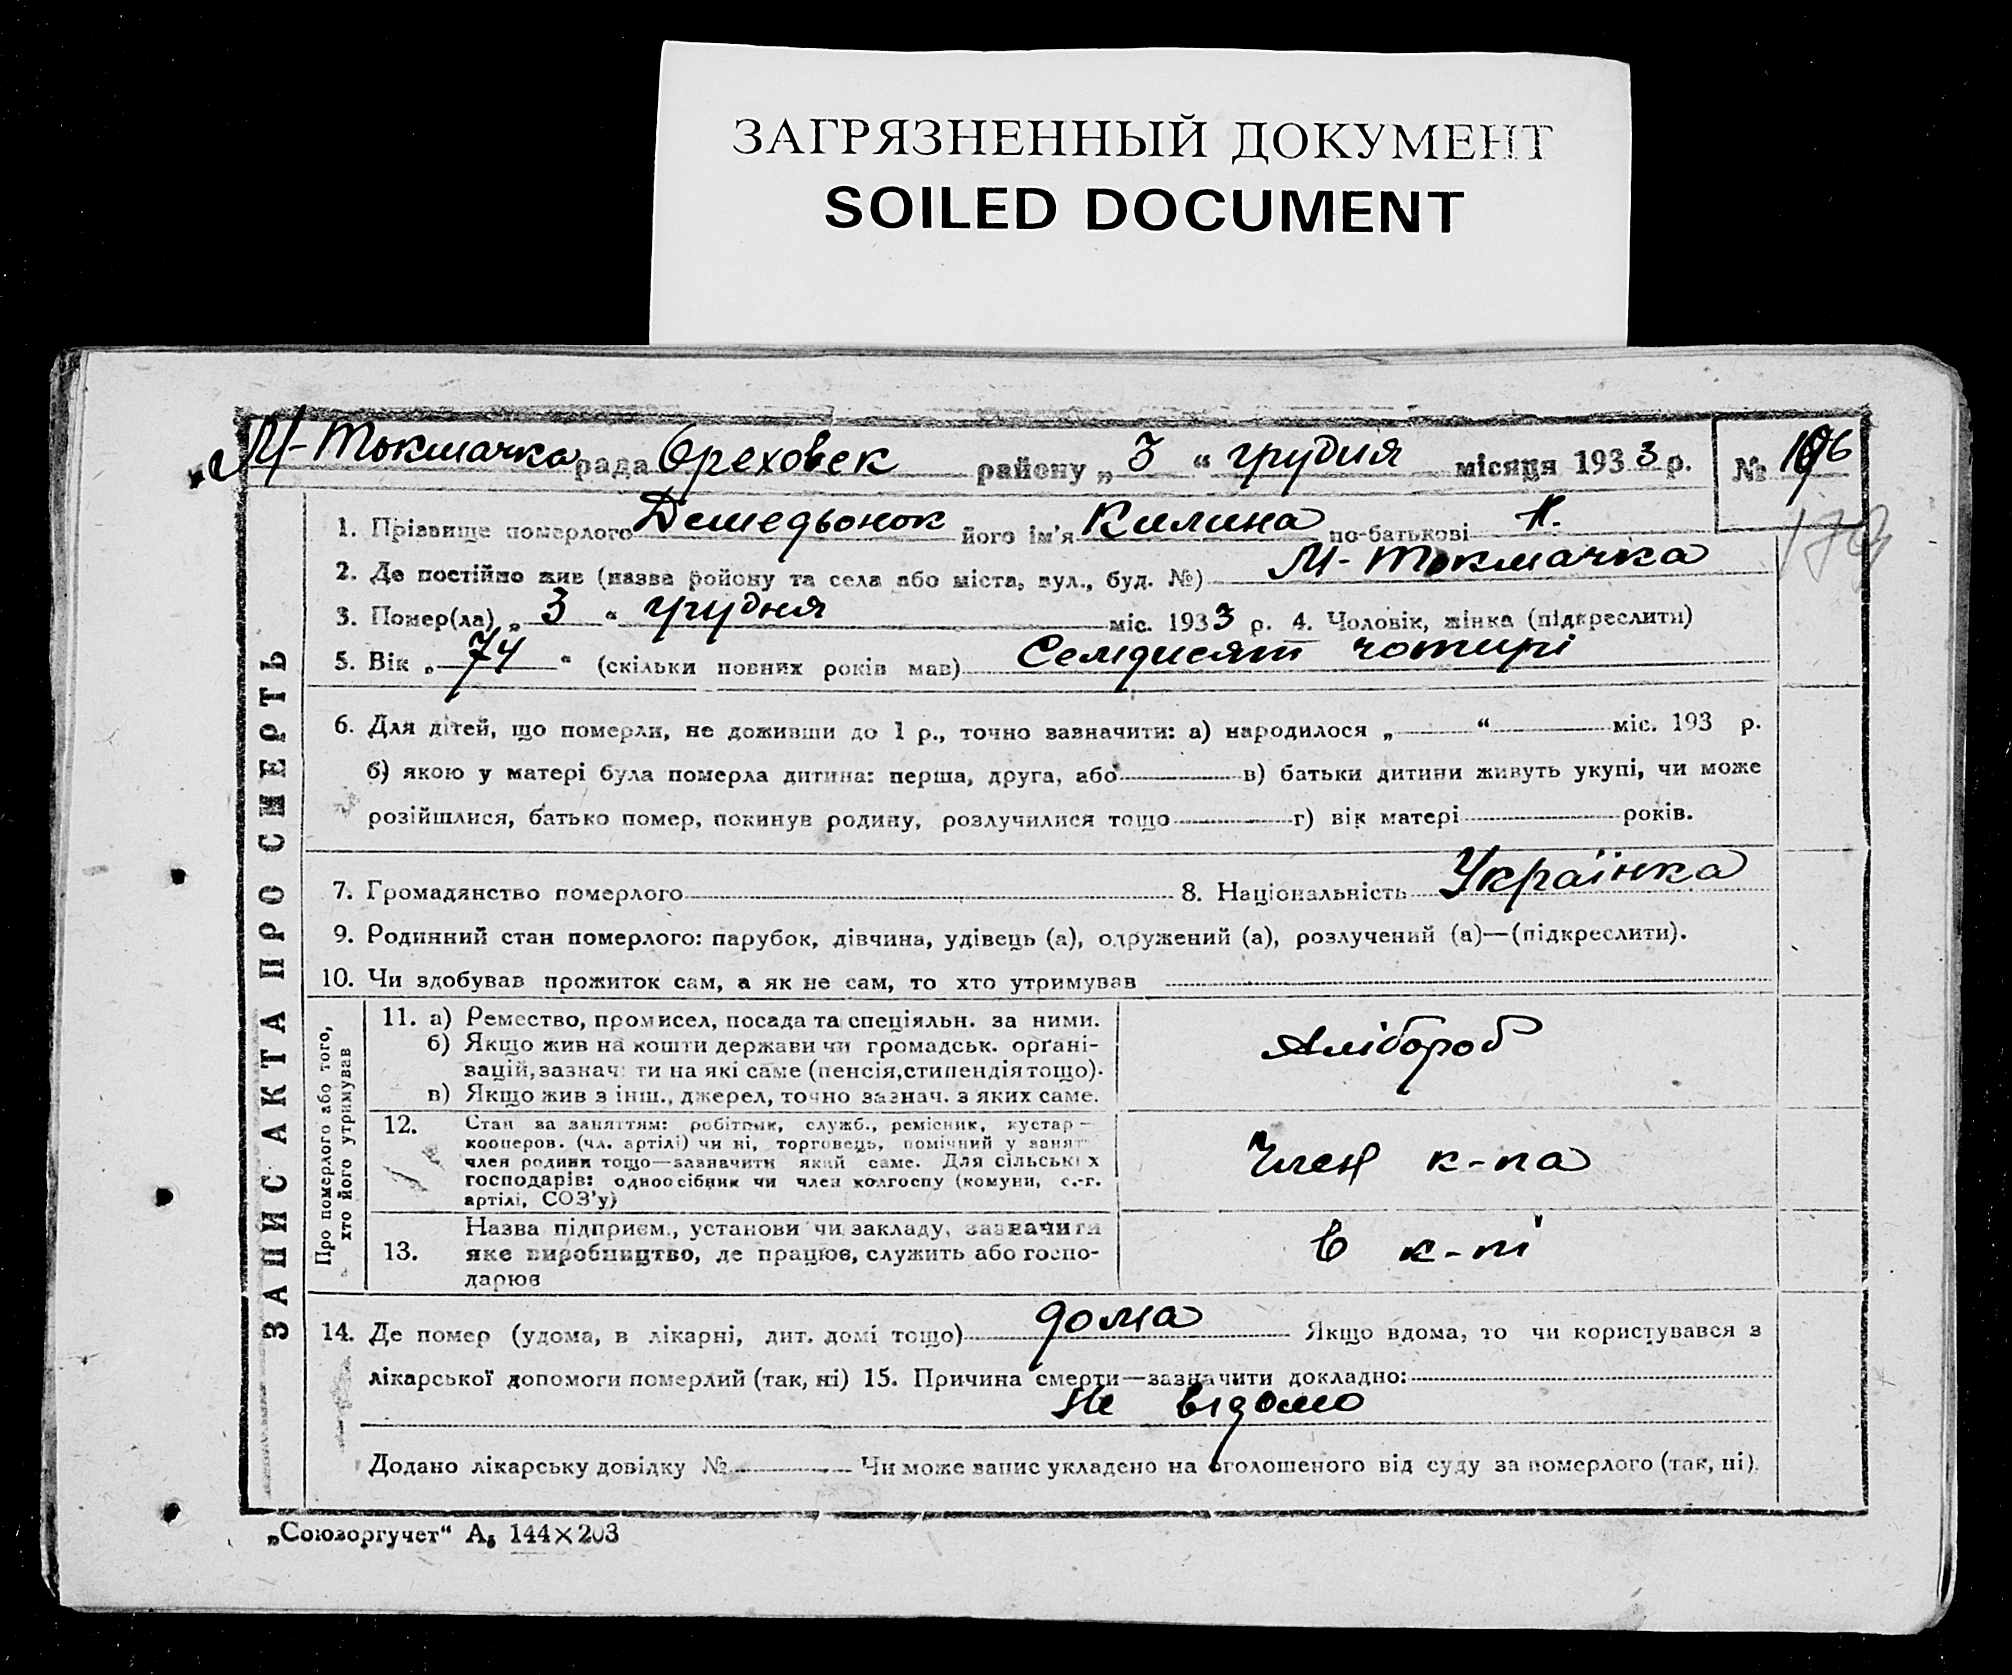 ЗАГРЯЗНЕННЫЙ ДОКУМЕНТ
SOILED DOCUMENT
М-Токмачка рада Ореховск району „ 3 “ грудня місяця 1933 р. №
ЗАПИС АКТА ПРО СМЕРТЬ
1. Прізвище померлого Демедьонок його ім'я Килина по-батькові
2. Де постійно жив (назва району та села або міста, вул., буд. №) М-Токмачка
3. Помер(ла) „ 3 “ грудня міс. 1933 р. 4. Чоловік, жінка (підкреслити)
5. Вік „ 74 “ (скільки повних років мав) Семдисят чотирі
6. Для дітей, що померли, не доживши до 1 р., точно зазначити: а) народилося „ “ міс. 193 р.
б) якою у матері була померла дитина: перша, друга, або в) батьки дитини живуть укупі, чи може
розійшлися, батько помер, покинув родину, розлучилися тощо г) вік матері років.
7. Громадянство померлого 8. Національність Українка
9. Родинний стан померлого: парубок, дівчина, удівець (а), одружений (а), розлучений (а)—(підкреслити).
10. Чи здобував прожиток сам, а як не сам, то хто утримував
Про померлого або того, хто його утримував
11. а) Ремество, промисел, посада та спеціяльн. за ними.
б) Якщо жив на кошти держави чи громадськ. орґані-
зацій, зазначити на які саме (пенсія, стипендія тощо).
в) Якщо жив з інш., джерел, точно зазнач. з яких саме.
Хлібороб
12. Стан за заняттям: робітник, служб., ремісник, кустар—
кооперов. (чл. артілі) чи ні, торговець, помічний у занят
член родини тощо—зазначити який саме. Для сільських
господарів: одноосібник чи член колгоспу (комуни, с.-г.
артілі, СОЗ'у)
Член к-па
13. Назва підприєм., установи чи закладу, зазначити
яке виробництво, де працює, служить або госпо-
дарює
в к-пі
14. Де помер (удома, в лікарні, дит. домі тощо) дома Якщо вдома, то чи користувався з
лікарської допомоги померлий (так, ні) 15. Причина смерти—зазначити докладно:
Не відомо
Додано лікарську довідку № Чи може запис укладено на оголошеного від суду за померлого (так, ні).
„Союзоргучет“ А5 144×203